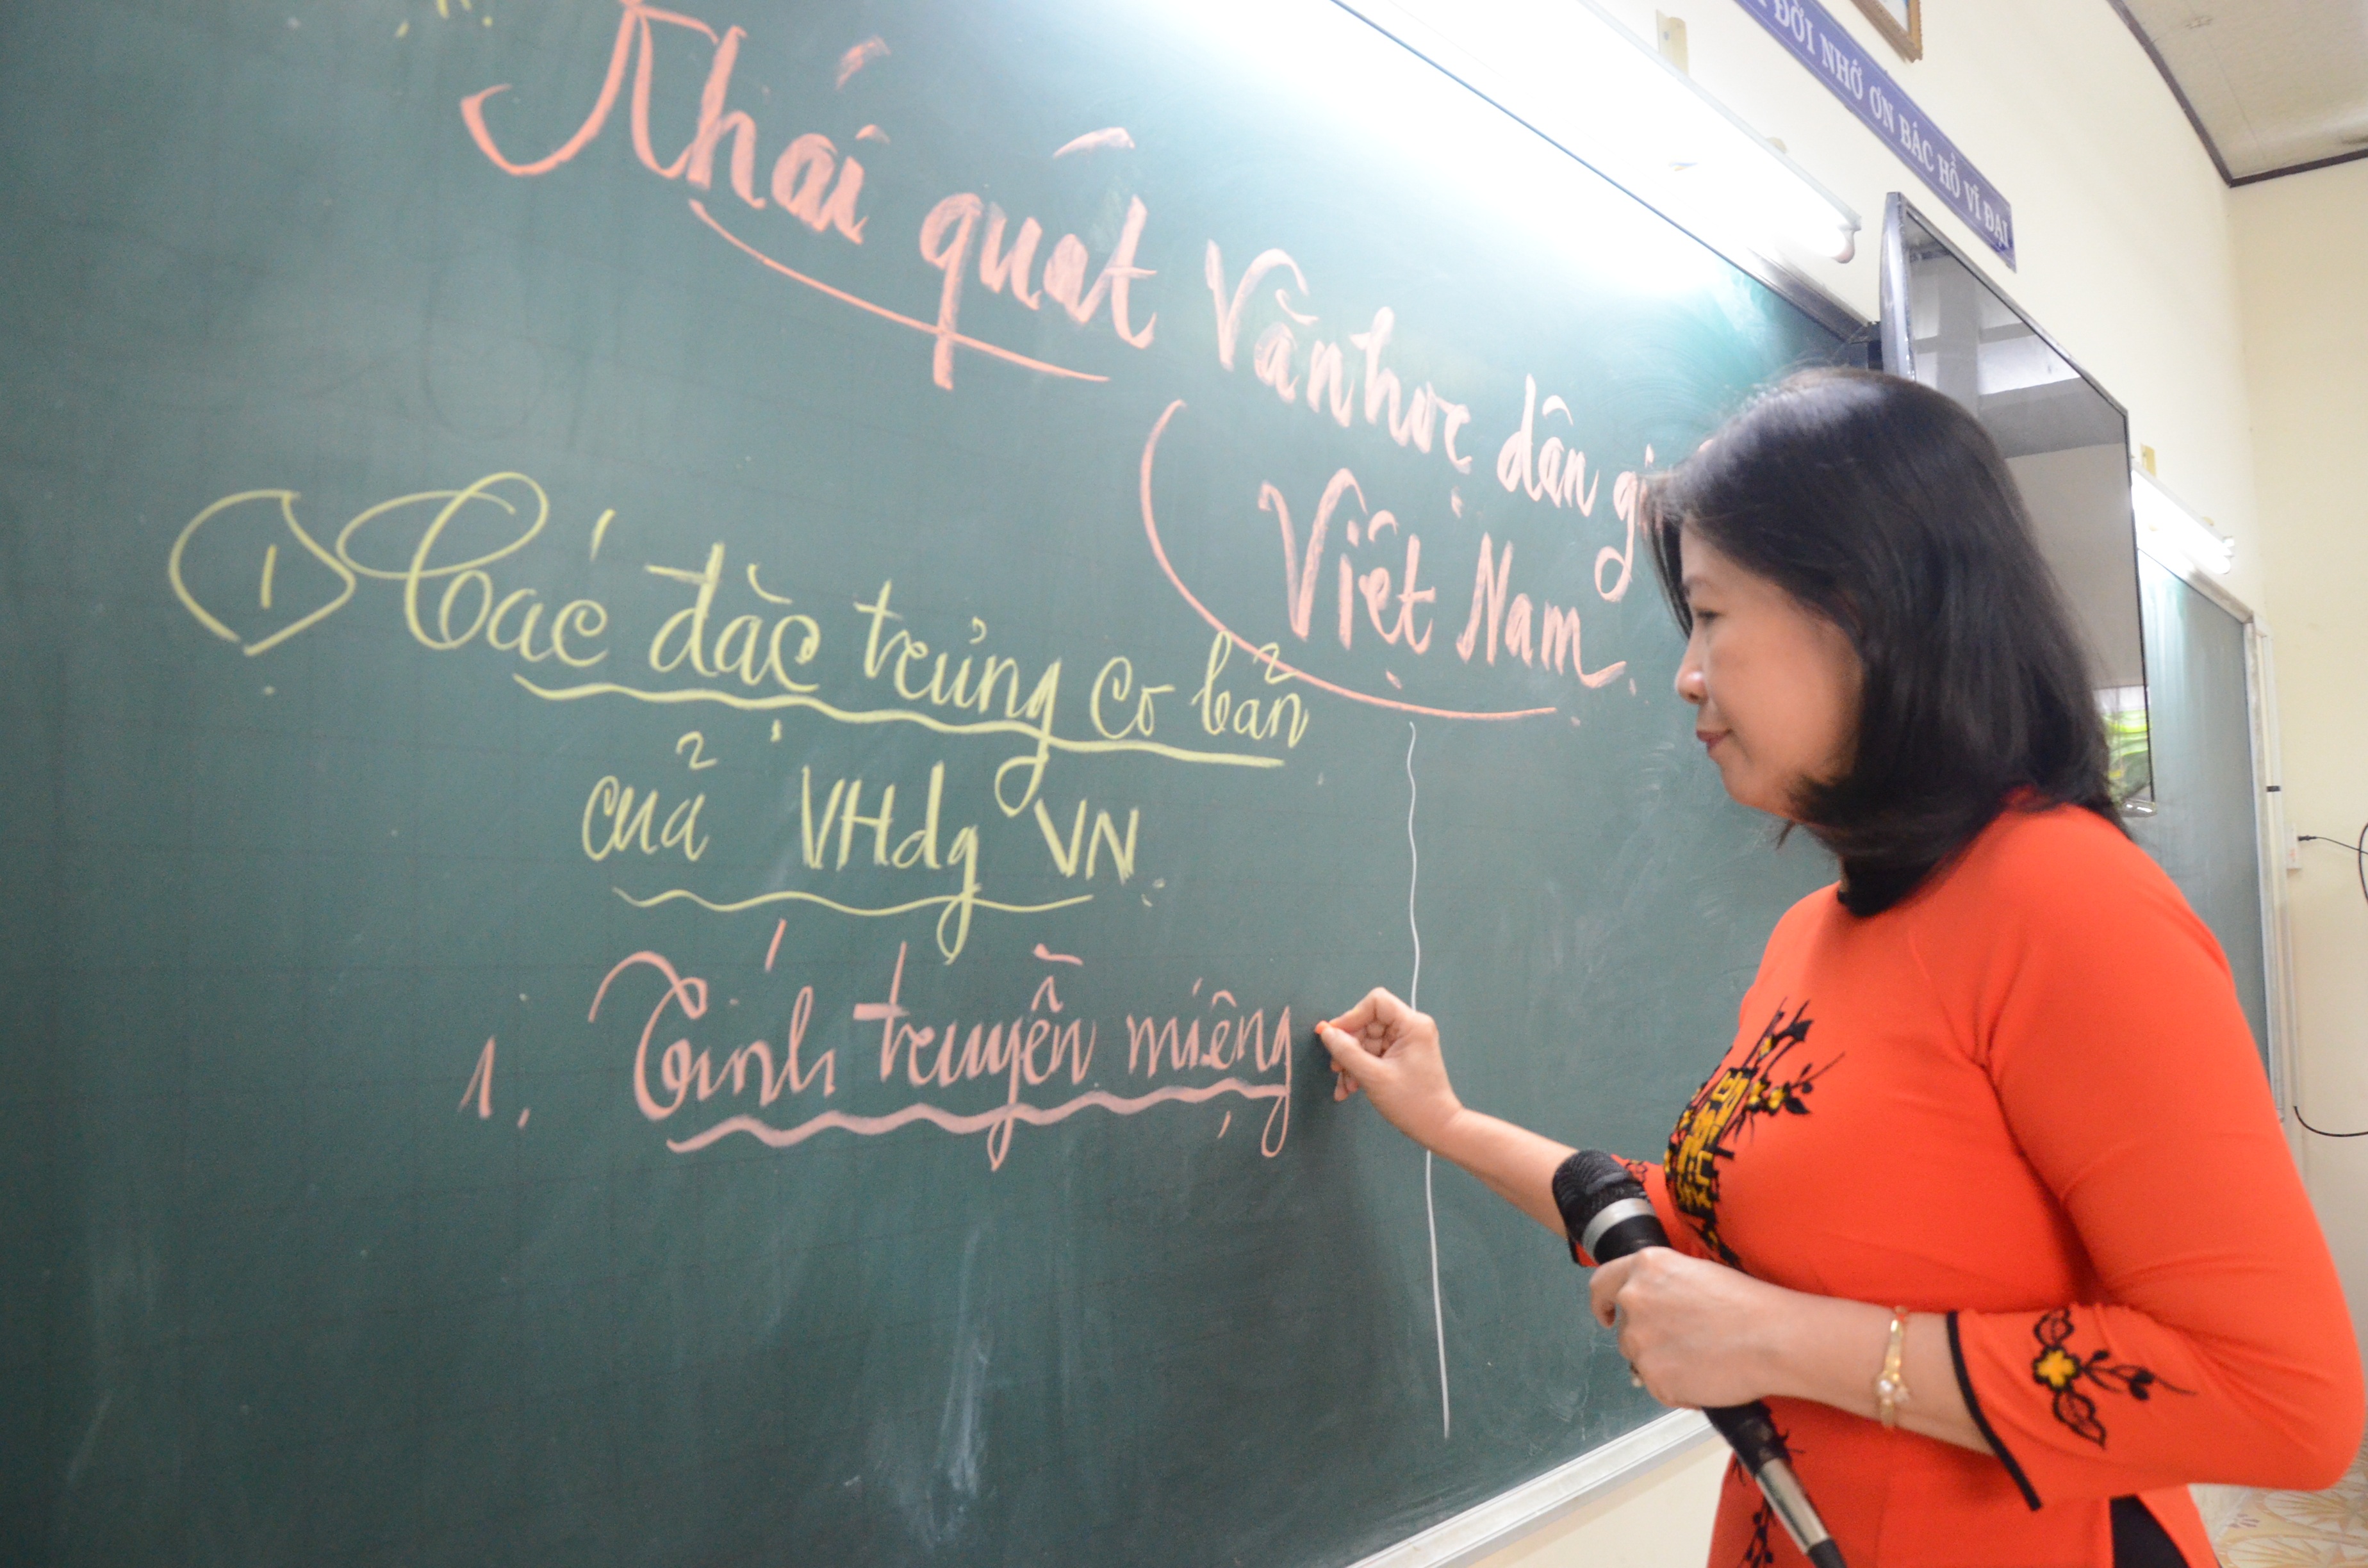 ĐỜI NHỚ ƠN BÁC HỒ VĨ ĐẠI
Khái quát Văn học dân
Việt Nam
1 Các đặc trưng cơ bản
của VHdg VN
1. Tính truyền miệng